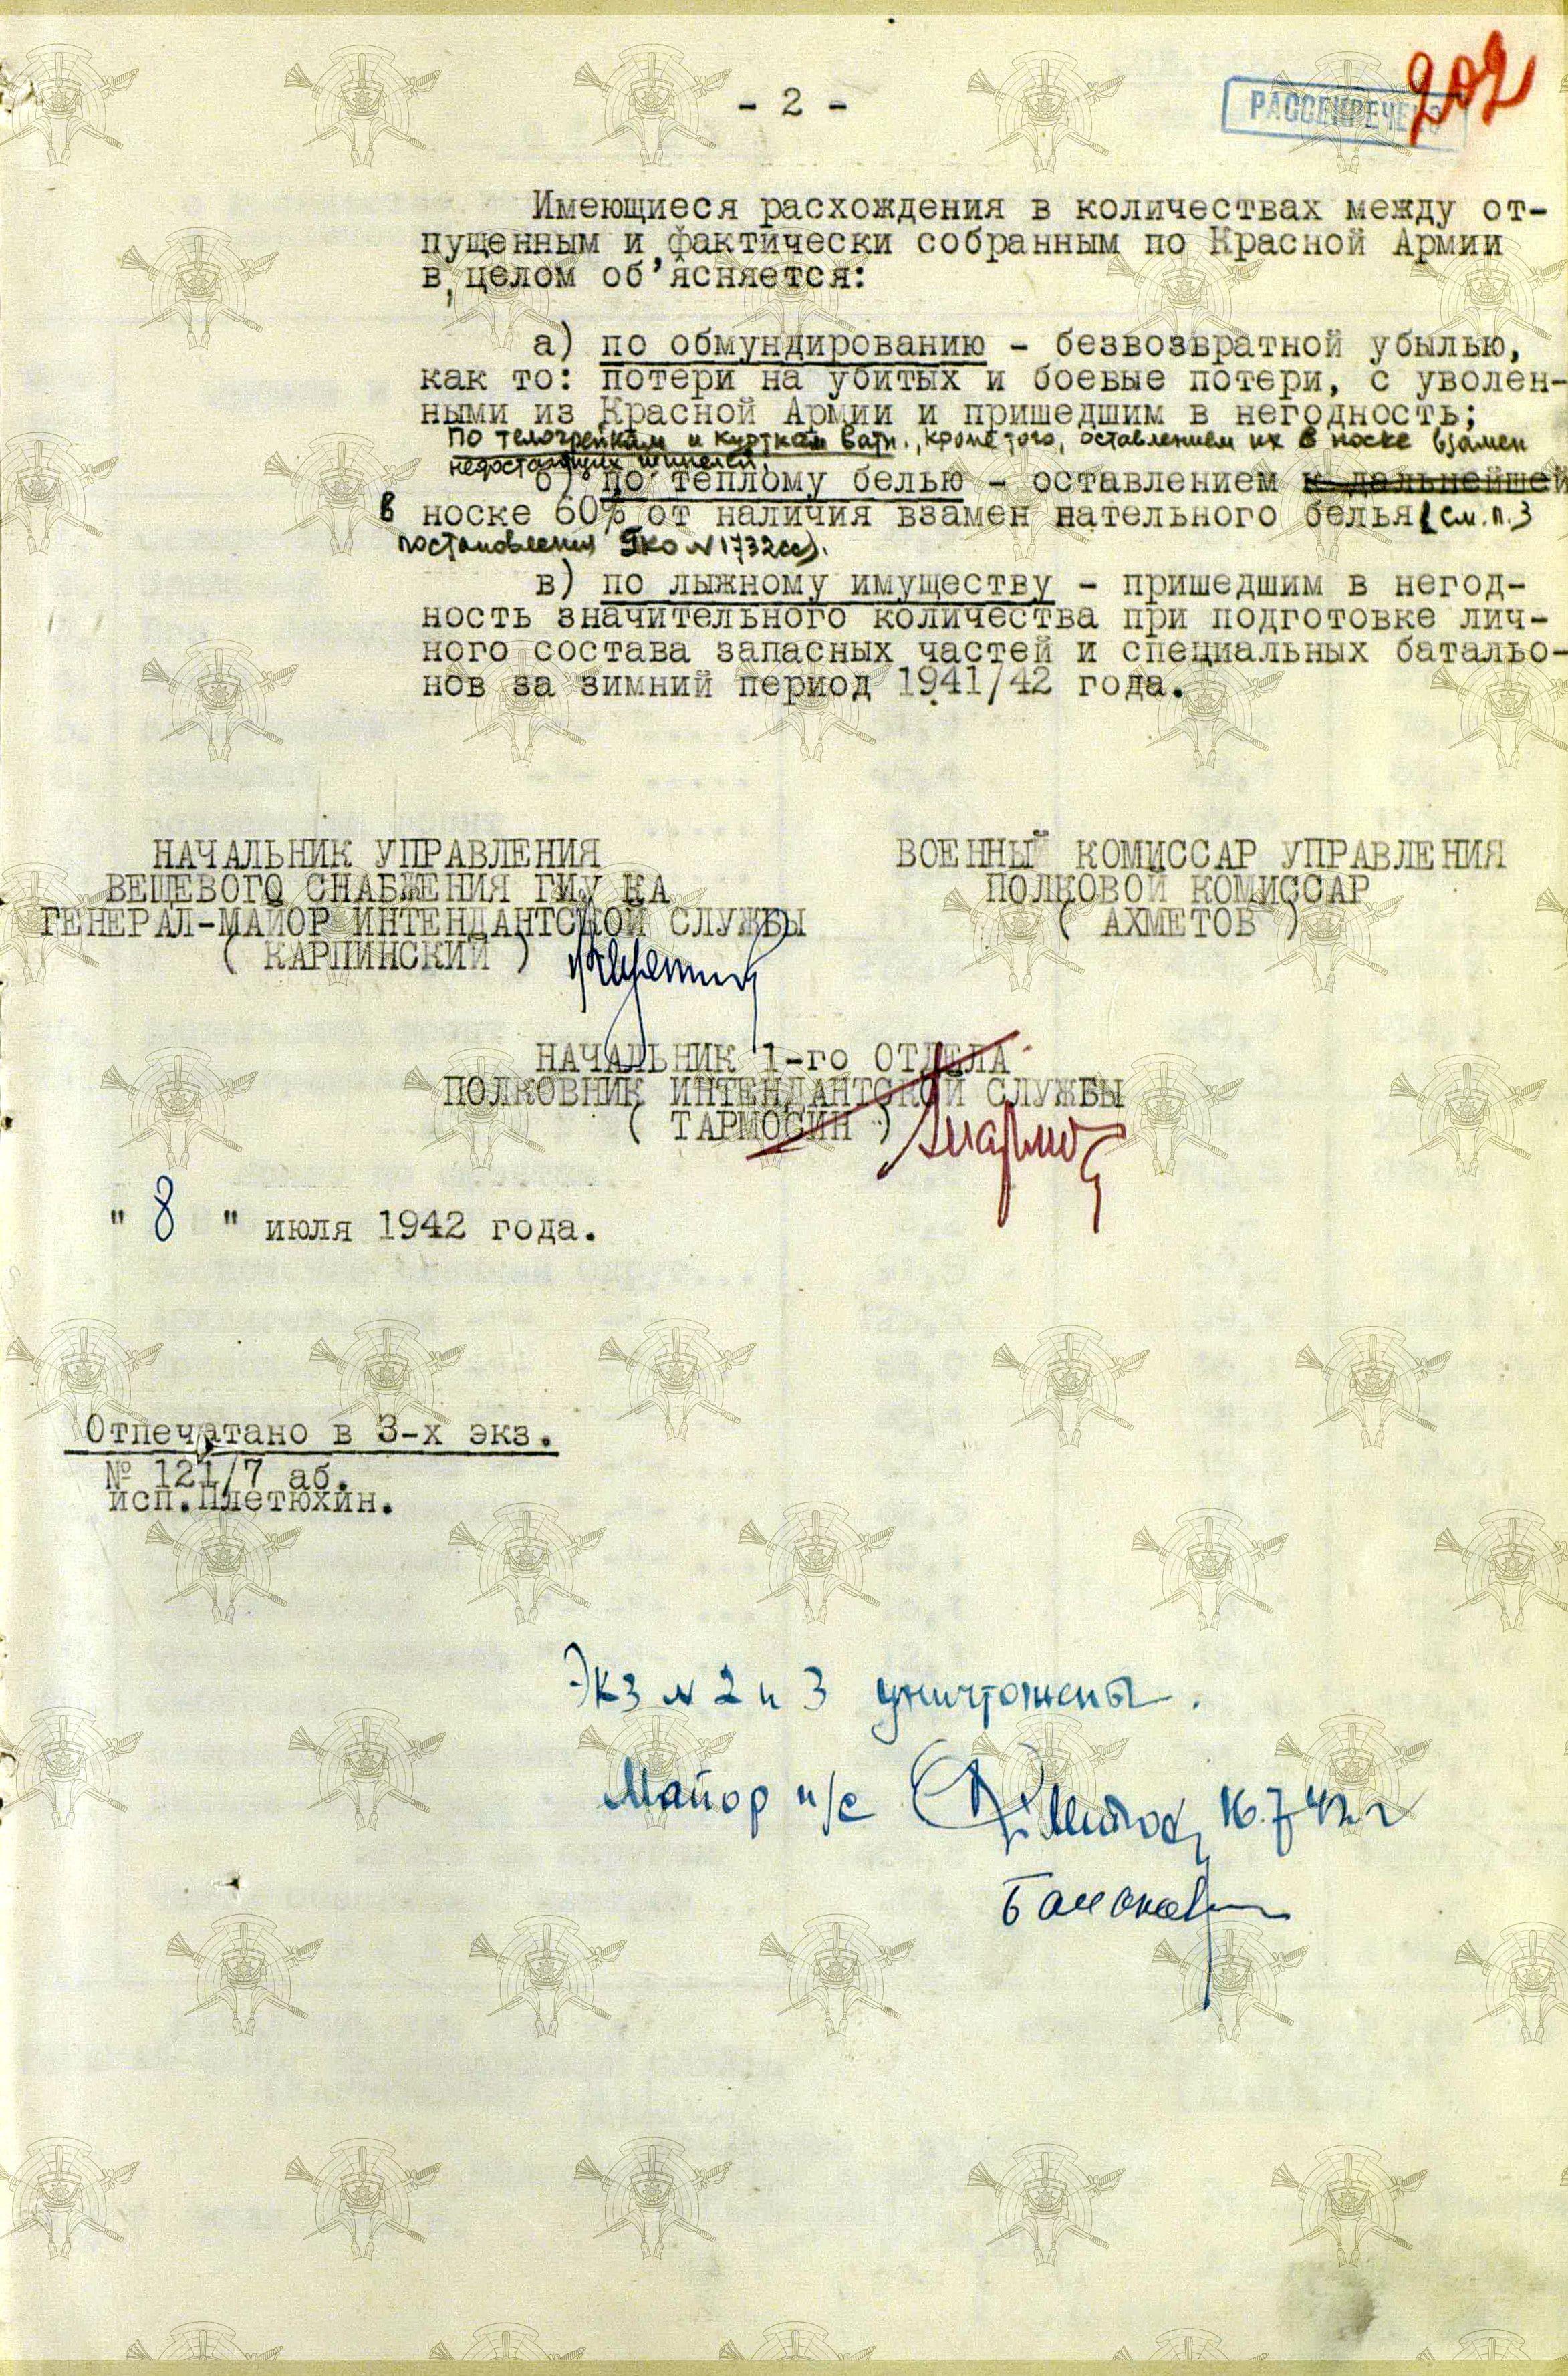 - 2 -
РАССЕКРЕЧЕНО
202
Имеющиеся расхождения в количествах между от-
пущенным и фактически собранным по Красной Армии
в целом об'ясняется:
а) по обмундированию - безвозвратной убылью,
как то: потери на убитых и боевые потери, с уволен-
ными из Красной Армии и пришедшим в негодность;
по телогрейкам и курткам ватн., кроме того, оставлением их в носке взамен
недостающих шинелей.
б) по теплому белью - оставлением к дальнейшей
в носке 60% от наличия взамен нательного белья (см. п. 3
постановления ГКО № 1732сс).
в) по лыжному имуществу - пришедшим в негод-
ность значительного количества при подготовке лич-
ного состава запасных частей и специальных батальо-
нов за зимний период 1941/42 года.
НАЧАЛЬНИК УПРАВЛЕНИЯ
ВЕЩЕВОГО СНАБЖЕНИЯ ГИУ КА
ГЕНЕРАЛ-МАЙОР ИНТЕНДАНТСКОЙ СЛУЖБЫ
( КАРПИНСКИЙ )
ВОЕННЫЙ КОМИССАР УПРАВЛЕНИЯ
ПОЛКОВОЙ КОМИССАР
( АХМЕТОВ )
НАЧАЛЬНИК 1-го ОТДЕЛА
ПОЛКОВНИК ИНТЕНДАНТСКОЙ СЛУЖБЫ
( ТАРМОСИН )
" 8 " июля 1942 года.
Отпечатано в 3-х экз.
№ 121/7 аб.
исп.Плетюхин.
Экз № 2 и 3 уничтожены.
Майор и/с 16.7.42 г